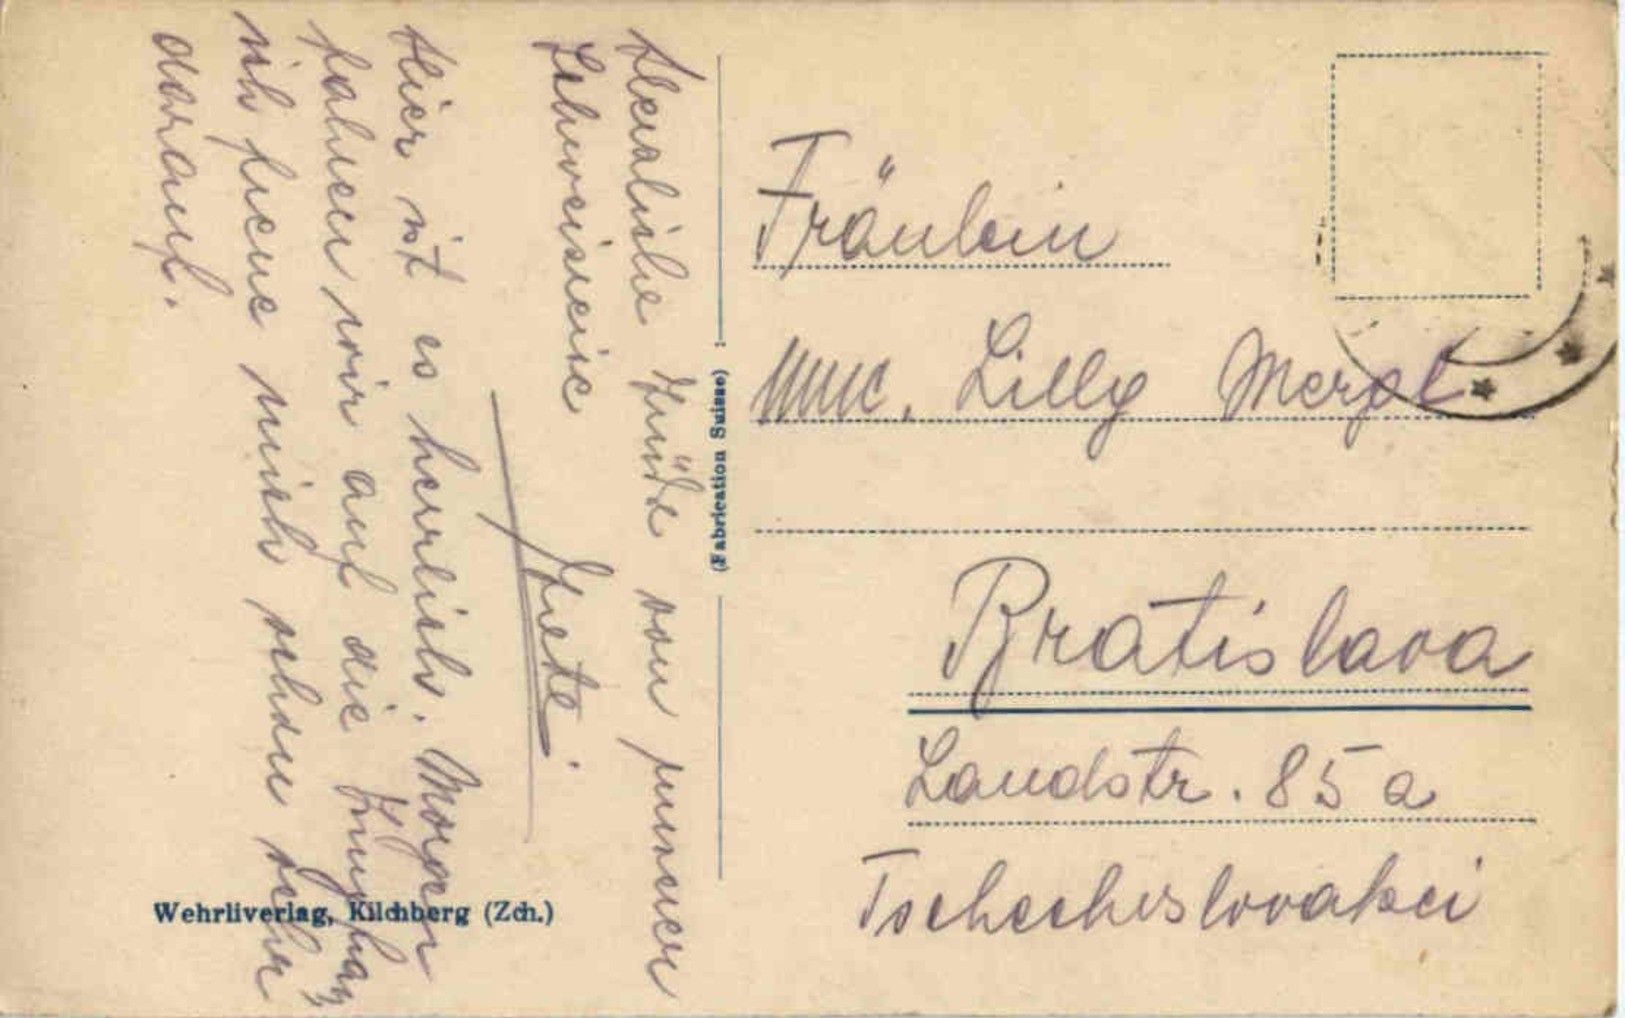 Herzliche Grüße von meiner
Schweizreise
Grete.
Hier ist es herrlich. Morgen
fahren wir auf die
ich freue mich schon sehr
darauf.
(Fabrication Suisse)
Wehrliverlag, Kilchberg (Zch.)
Fräulein
Lilly Mergl
Bratislava
Landstr. 85 a
Tschechislovakei